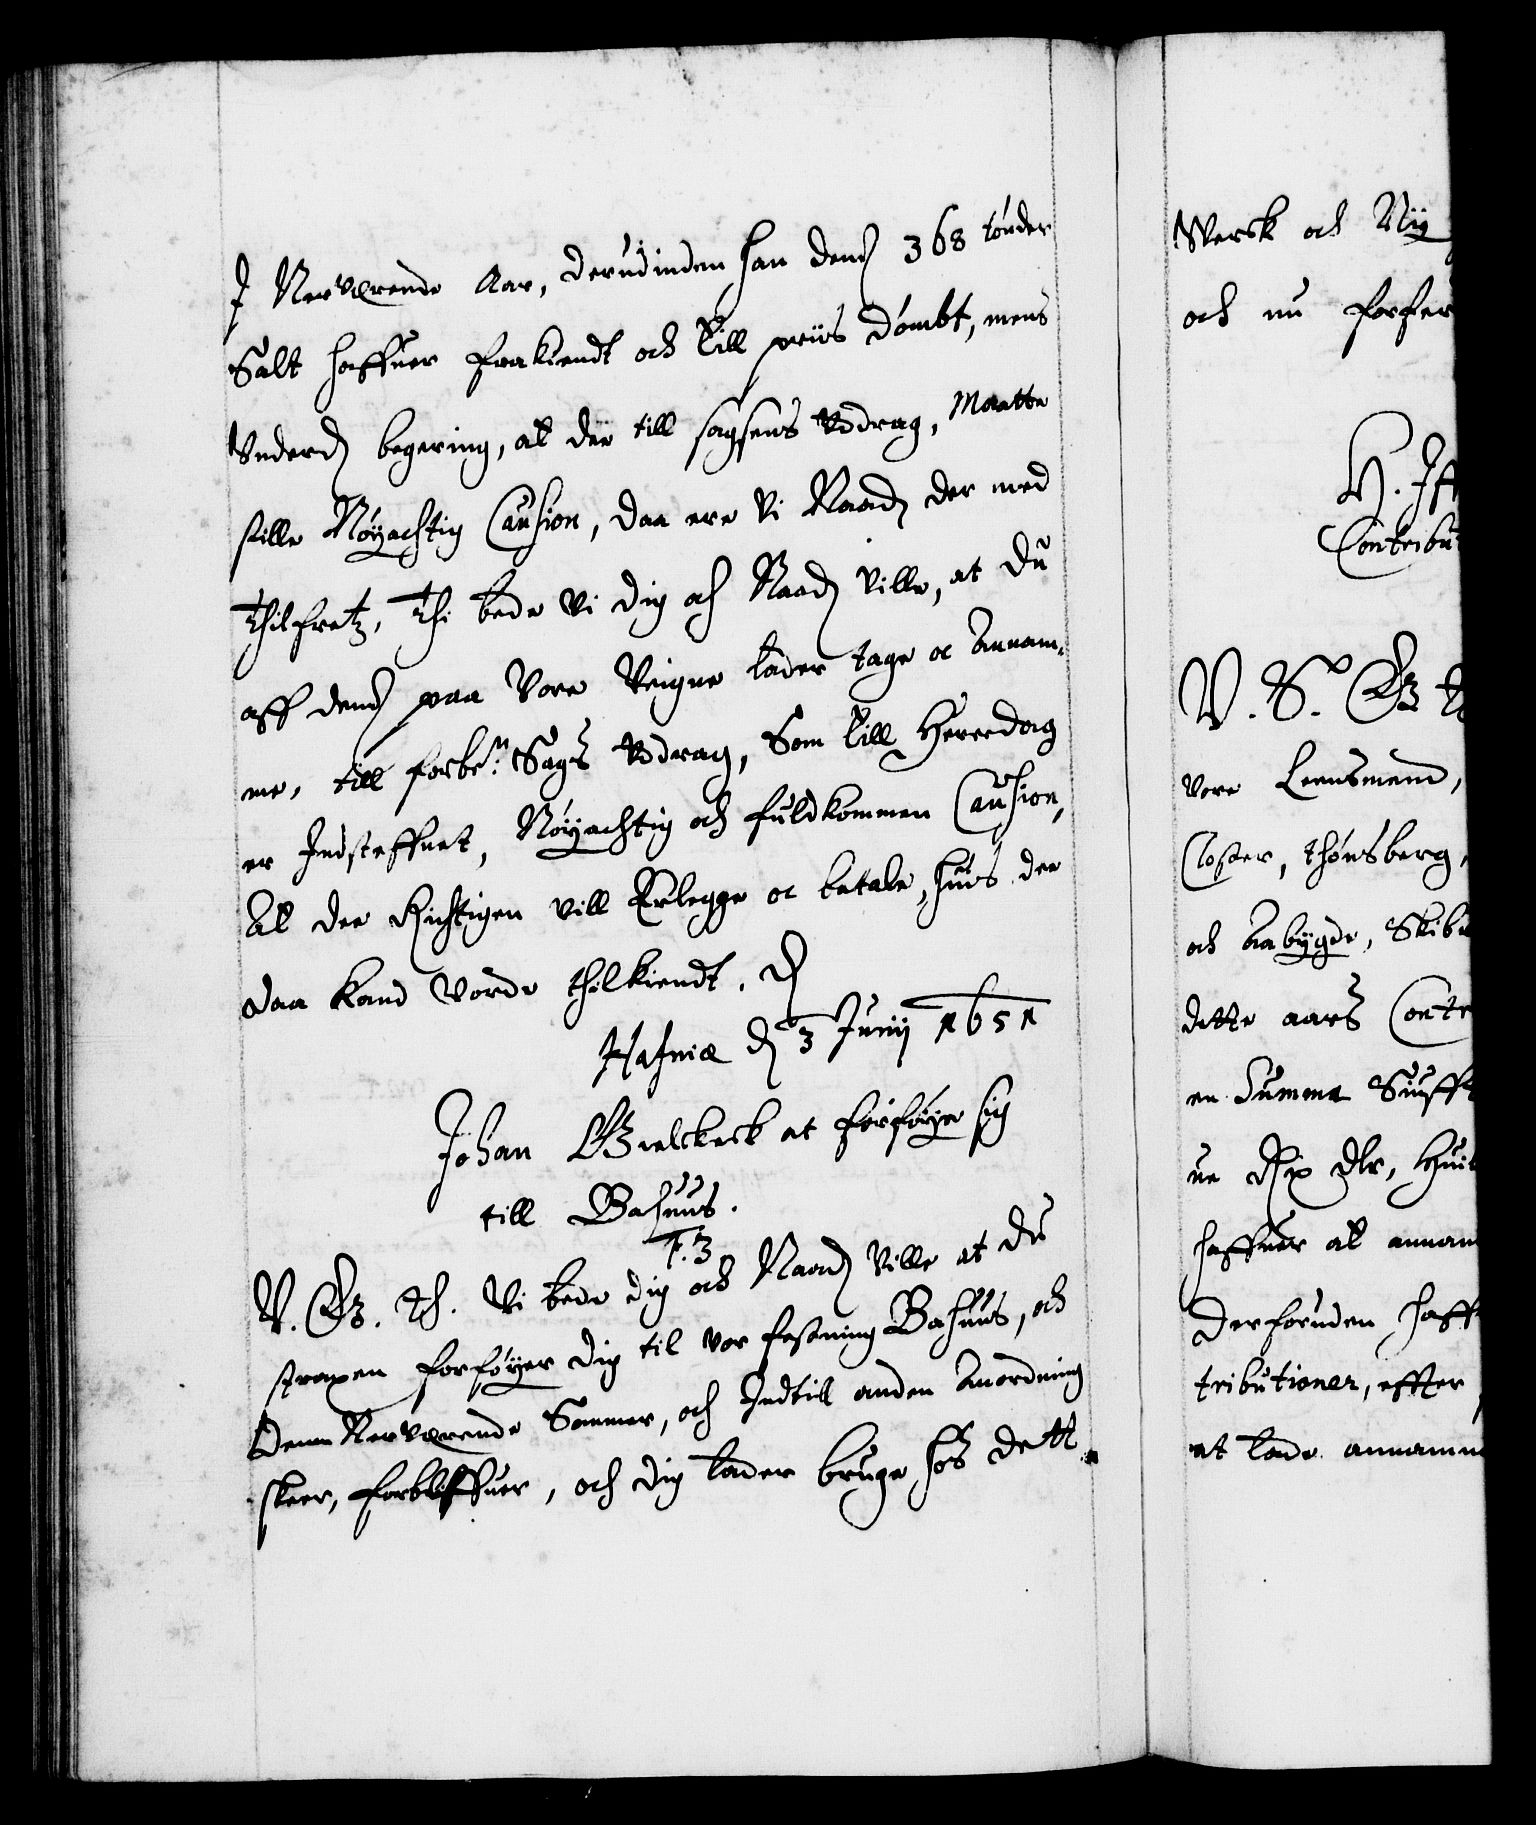 I Nerværende Aar, derudinden han dend 368 tønder
Salt haffuer frakiendt och till priis dømbt, mens
Vnderd begering, at der till sagsens Vddrag, Maatte
stille Nøyachtig Caution, daa ere Vi Naadr der med
Thilfretz, Thi bede Vi dig och Naadr Ville, at du
aff dend paa Vore Veigne lader tage oc Annam-
me, till forben: Sags Vddrag, Som till Herredag
er Indsteffnet, Nøyachtig och fuldkommen Caution,
At der Richtigen vill Erlegge oc betale, huis der
daa kand Vorde thilkiendt. D
Hafniæ d 3 Junij 1651
Johan Bielckeck at forføye sig
till Bahuus.
F. 3
V. G. Th. Vi bede dig och Naadr Ville at du
straxen forføyer dig til vor festning Bahuus, och
Denn Nerværende Sommer, och Indtill anden Anordning
skeer, forbliffuer, och dig lader bruge hos dett
Werck och Nÿ
och nu forfer
H. If
Contribut
V. S. G. T
vore Leensmend,
Closter, thønsberg,
och Aabygde, Skib
dette aars Contr
en Summa
ne Rix dlr, Huil
haffuer at annam
Derforuden haff
tributioner, effter
at lade annamm